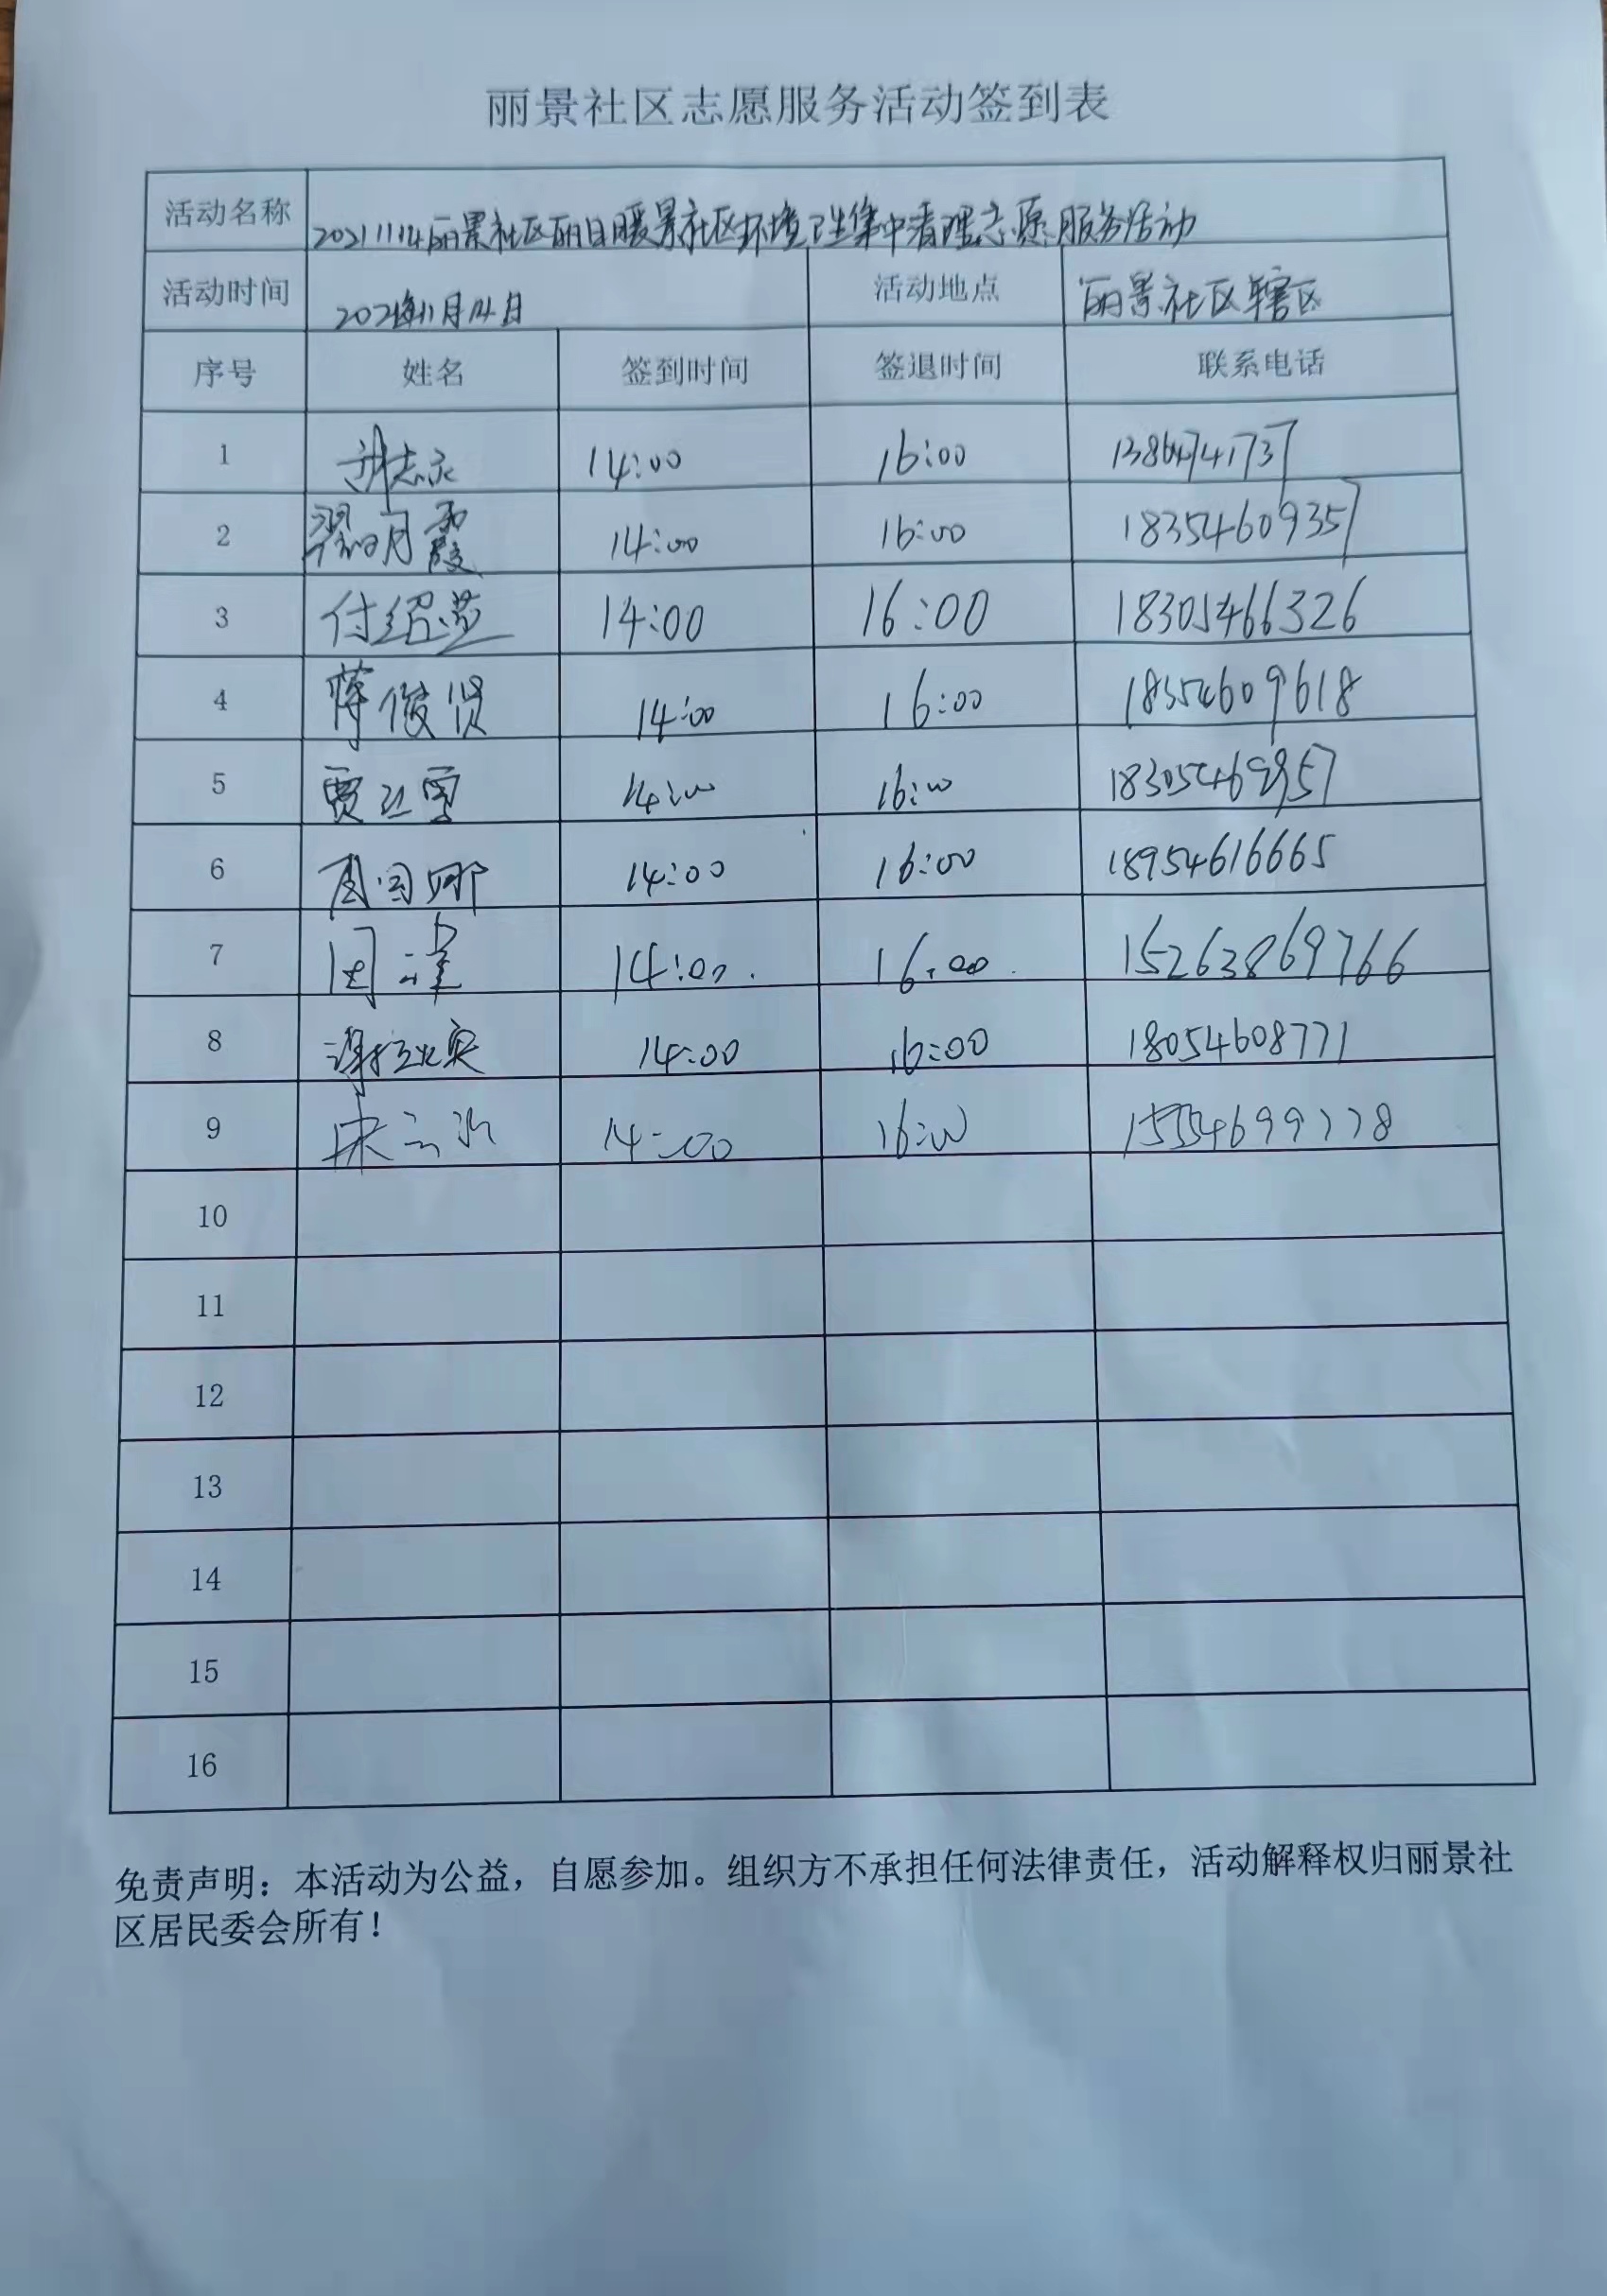 丽景社区志愿服务活动签到表
活动名称 20211114丽景社区丽日暖景社区环境卫生集中清理志愿服务活动
活动时间 2021年11月14日 活动地点 丽景社区辖区
序号 姓名 签到时间 签退时间 联系电话
1 14:00 16:00
2 翟明霞 14:00 16:00 18354609357
3 付绍燕 14:00 16:00 18305466326
4 蒋俊贤 14:00 16:00 18354609618
5 贾 雪 14:00 16:00
6 周国娜 14:00 16:00 18954616665
7 14:00 16:00 15263869766
8 14:00 16:00 18054608771
9 宋云 14:00 16:00
10
11
12
13
14
15
16
免责声明：本活动为公益，自愿参加。组织方不承担任何法律责任，活动解释权归丽景社
区居民委会所有！